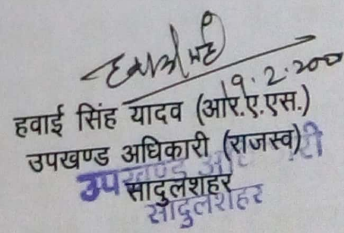 19.2.200
हवाई सिंह यादव (आर.ए.एस.)
उपखण्ड अधिकारी (राजस्व)
सादुलशहर
उपखण्ड
सादुलशहर